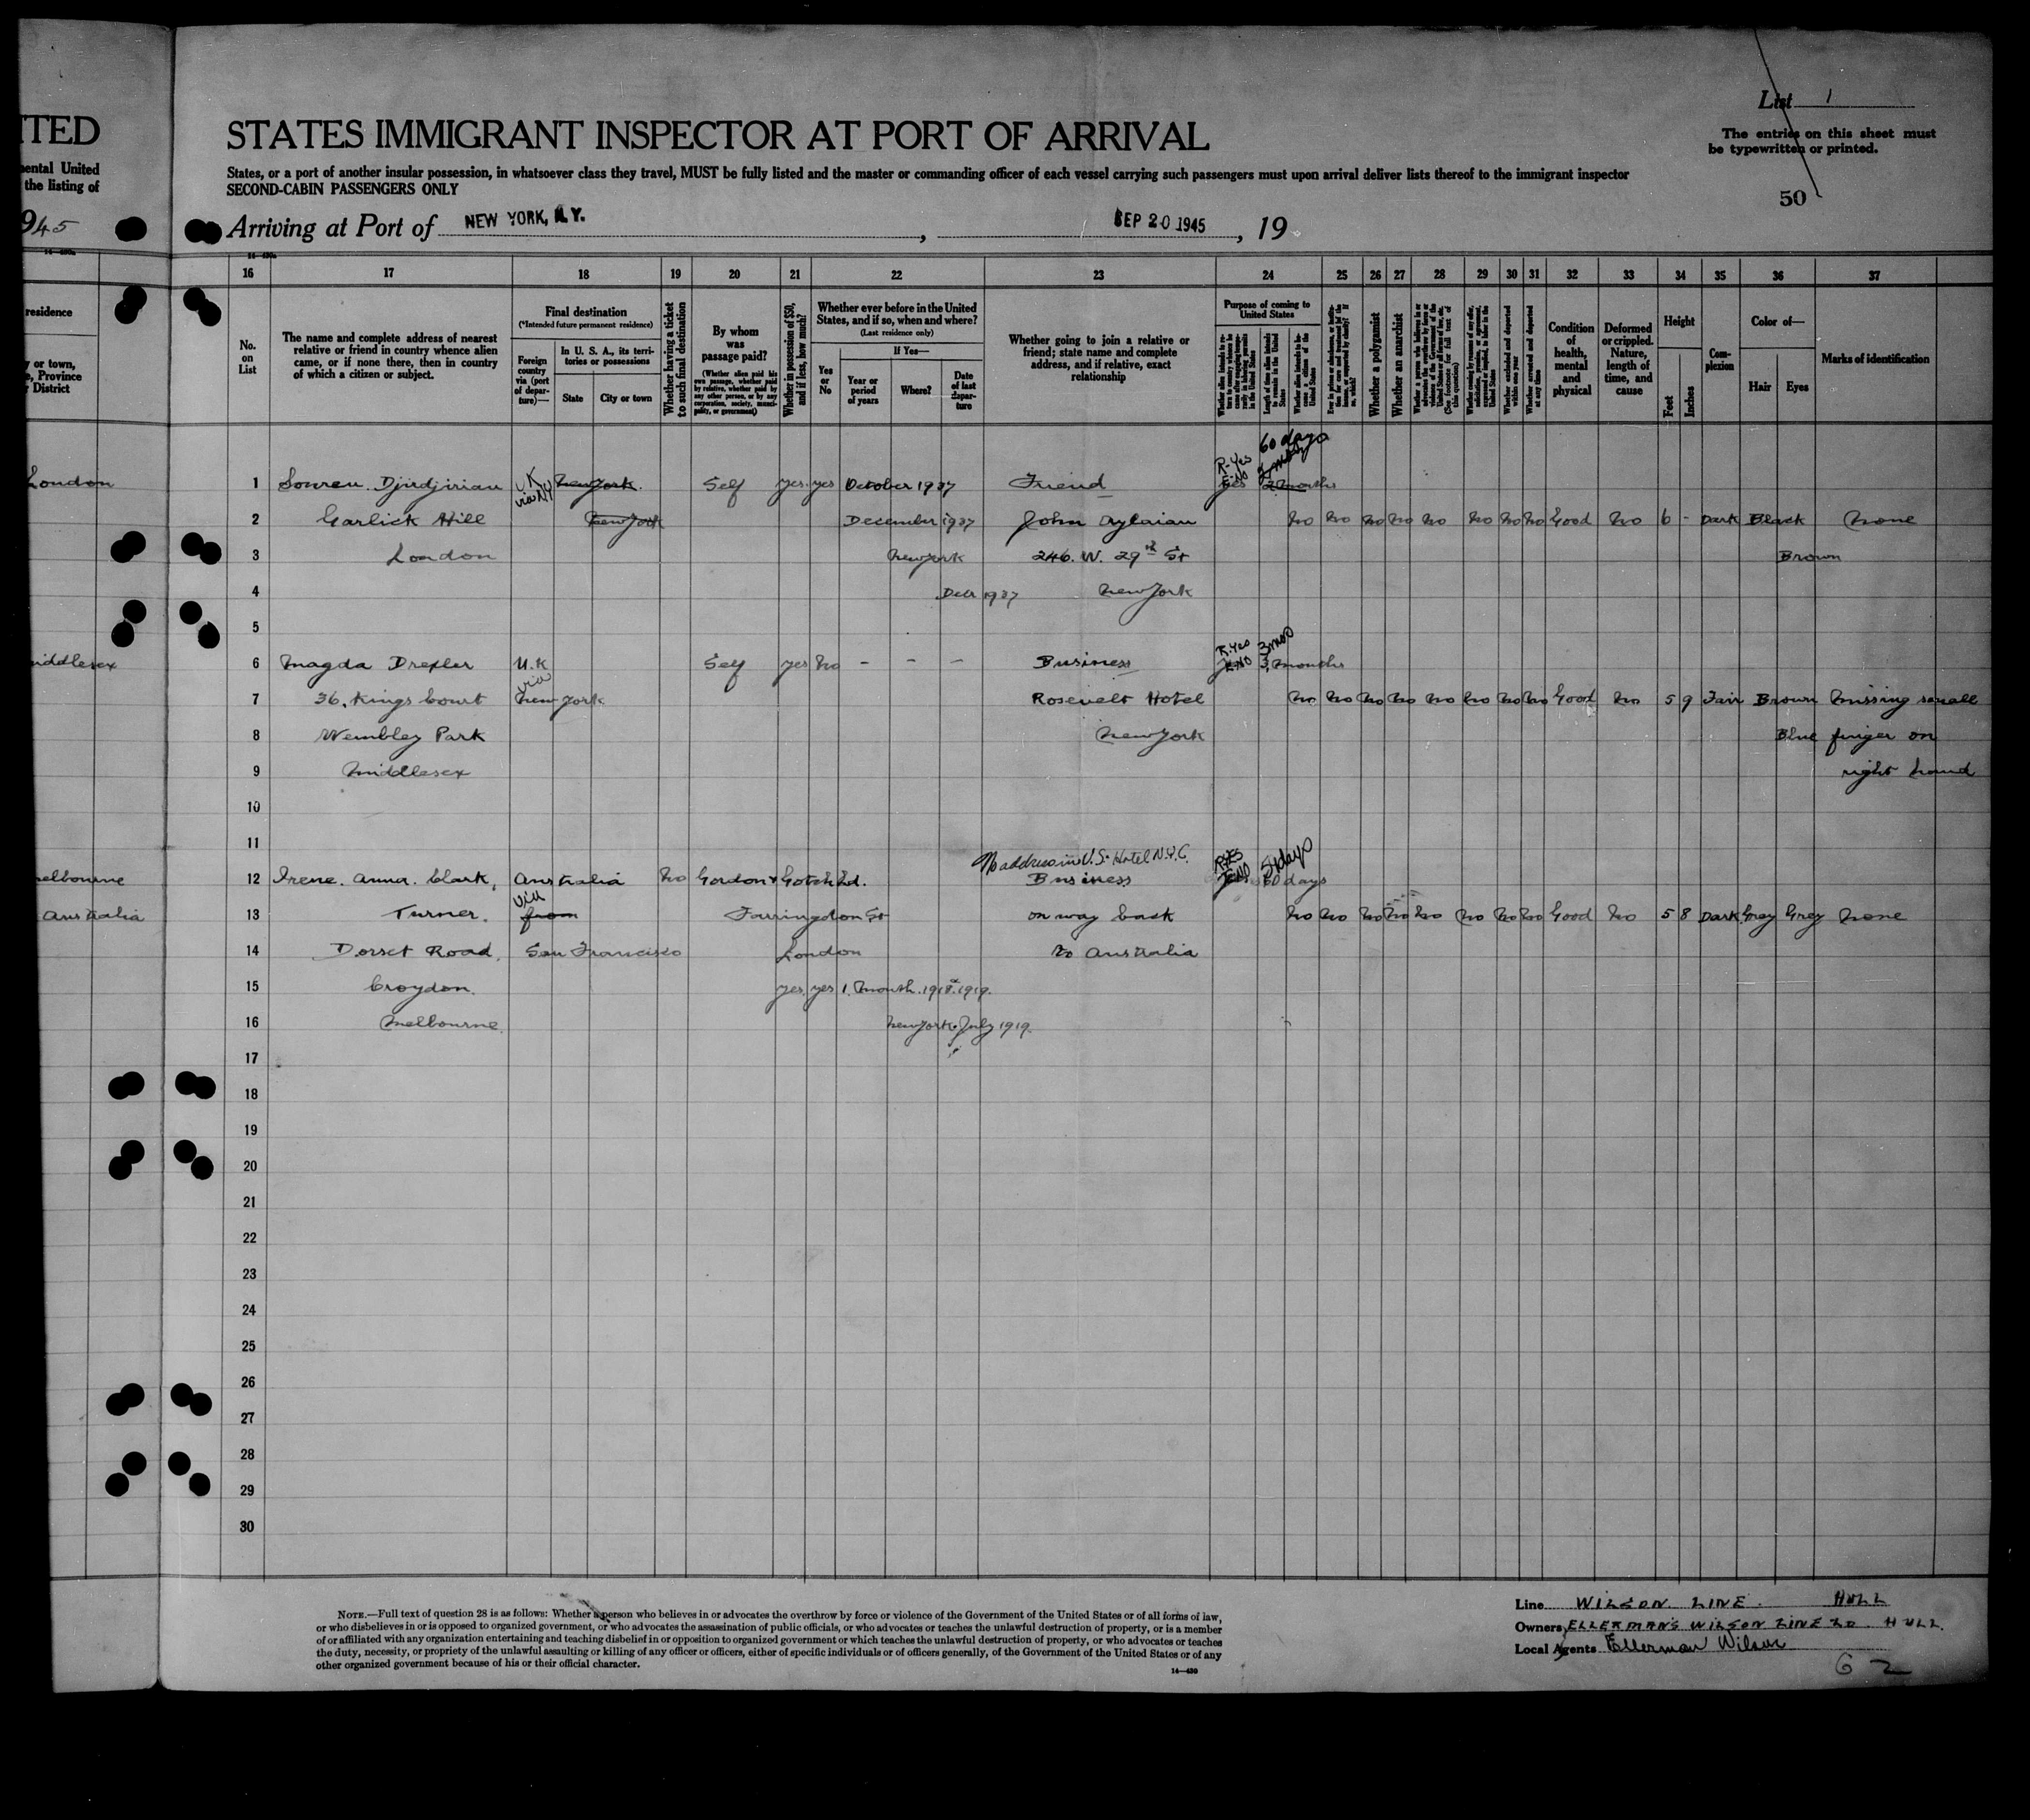 ITED
STATES IMMIGRANT INSPECTOR AT PORT OF ARRIVAL
List 1
The entries on this sheet must
be typewritten or printed.
mental United
the listing of
States, or a port of another insular possession, in whatsoever class they travel, MUST be fully listed and the master or commanding officer of each vessel carrying such passengers must upon arrival deliver lists thereof to the immigrant inspector
SECOND-CABIN PASSENGERS ONLY
50
945
Arriving at Port of NEW YORK, N.Y. , SEP 20 1945 , 19
16 17 18 19 20 21 22 23 24 25 26 27 28 29 30 31 32 33 34 35 36 37
residence
y or town,
e, Province
District
No.
on
List
The name and complete address of nearest
relative or friend in country whence alien
came, or if none there, then in country
of which a citizen or subject.
Final destination
(*Intended future permanent residence)
Foreign
country
via (port
of depar-
ture)—
In U. S. A., its terri-
tories or possessions
State
City or town
Whether having a ticket
to such final destination
By whom
was
passage paid?
(Whether alien paid his
own passage, whether paid
by relative, whether paid by
any other person, or by any
corporation, society, munici-
pality, or government)
Whether in possession of $50,
and if less, how much?
Whether ever before in the United
States, and if so, when and where?
(Last residence only)
Yes
or
No
If Yes—
Year or
period
of years
Where?
Date
of last
depar-
ture
Whether going to join a relative or
friend; state name and complete
address, and if relative, exact
relationship
Purpose of coming to
United States
Length of time alien intends
to remain in the United
States
Whether alien intends to be-
come a citizen of the
United States
Whether a polygamist
Whether an anarchist
Whether excluded and deported
within one year
Whether arrested and deported
at any time
Condition
of
health,
mental
and
physical
Deformed
or crippled.
Nature,
length of
time, and
cause
Height
Feet
Inches
Com-
plexion
Color of—
Hair
Eyes
Marks of identification
60 days
London 1 Souren. Djirdjirian UK via NY New York. Self yes yes October 1937 Friend R-Yes E-No yes 2 months
2 Garlick Hill New York December 1937 John Aylaian No No No No No No No No Good No 6 - Dark Black None
3 London New York 246. W. 29th St Brown
4 Decr 1937 New York
5
Middlesex 6 Magda Drexler U.K via Self yes No - - - Business R-Yes E-No 3 mos 3 months
7 36, Kings Court New York Rosevelt Hotel No No No No No No No No Good No 5 9 Fair Brown Missing small
8 Wembley Park New York Blue finger on
9 Middlesex right hand
10
11
No address in U.S. Hotel N.Y.C.
Melbourne 12 Irene. Anna. Clark, Australia No Gordon & Gotch Ltd. Business R-Yes E-No 60 days
Australia 13 Turner. via from Farringdon St on way back No No No No No No No No Good No 5 8 Dark Grey Grey None
14 Dorset Road, San Francisco London to Australia
15 Croydon. yes yes 1. Month. 1918. 1919.
16 Melbourne. New York. July 1919.
17
18
19
20
21
22
23
24
25
26
27
28
29
30
NOTE.—Full text of question 28 is as follows: Whether a person who believes in or advocates the overthrow by force or violence of the Government of the United States or of all forms of law,
or who disbelieves in or is opposed to organized government, or who advocates the assassination of public officials, or who advocates or teaches the unlawful destruction of property, or is a member
of or affiliated with any organization entertaining and teaching disbelief in or opposition to organized government or which teaches the unlawful destruction of property, or who advocates or teaches
the duty, necessity, or propriety of the unlawful assaulting or killing of any officer or officers, either of specific individuals or of officers generally, of the Government of the United States or of any
other organized government because of his or their official character.
14—430
Line WILSON LINE. HULL
Owners ELLERMAN'S WILSON LINE LD. HULL.
Local Agents Ellerman Wilson
62